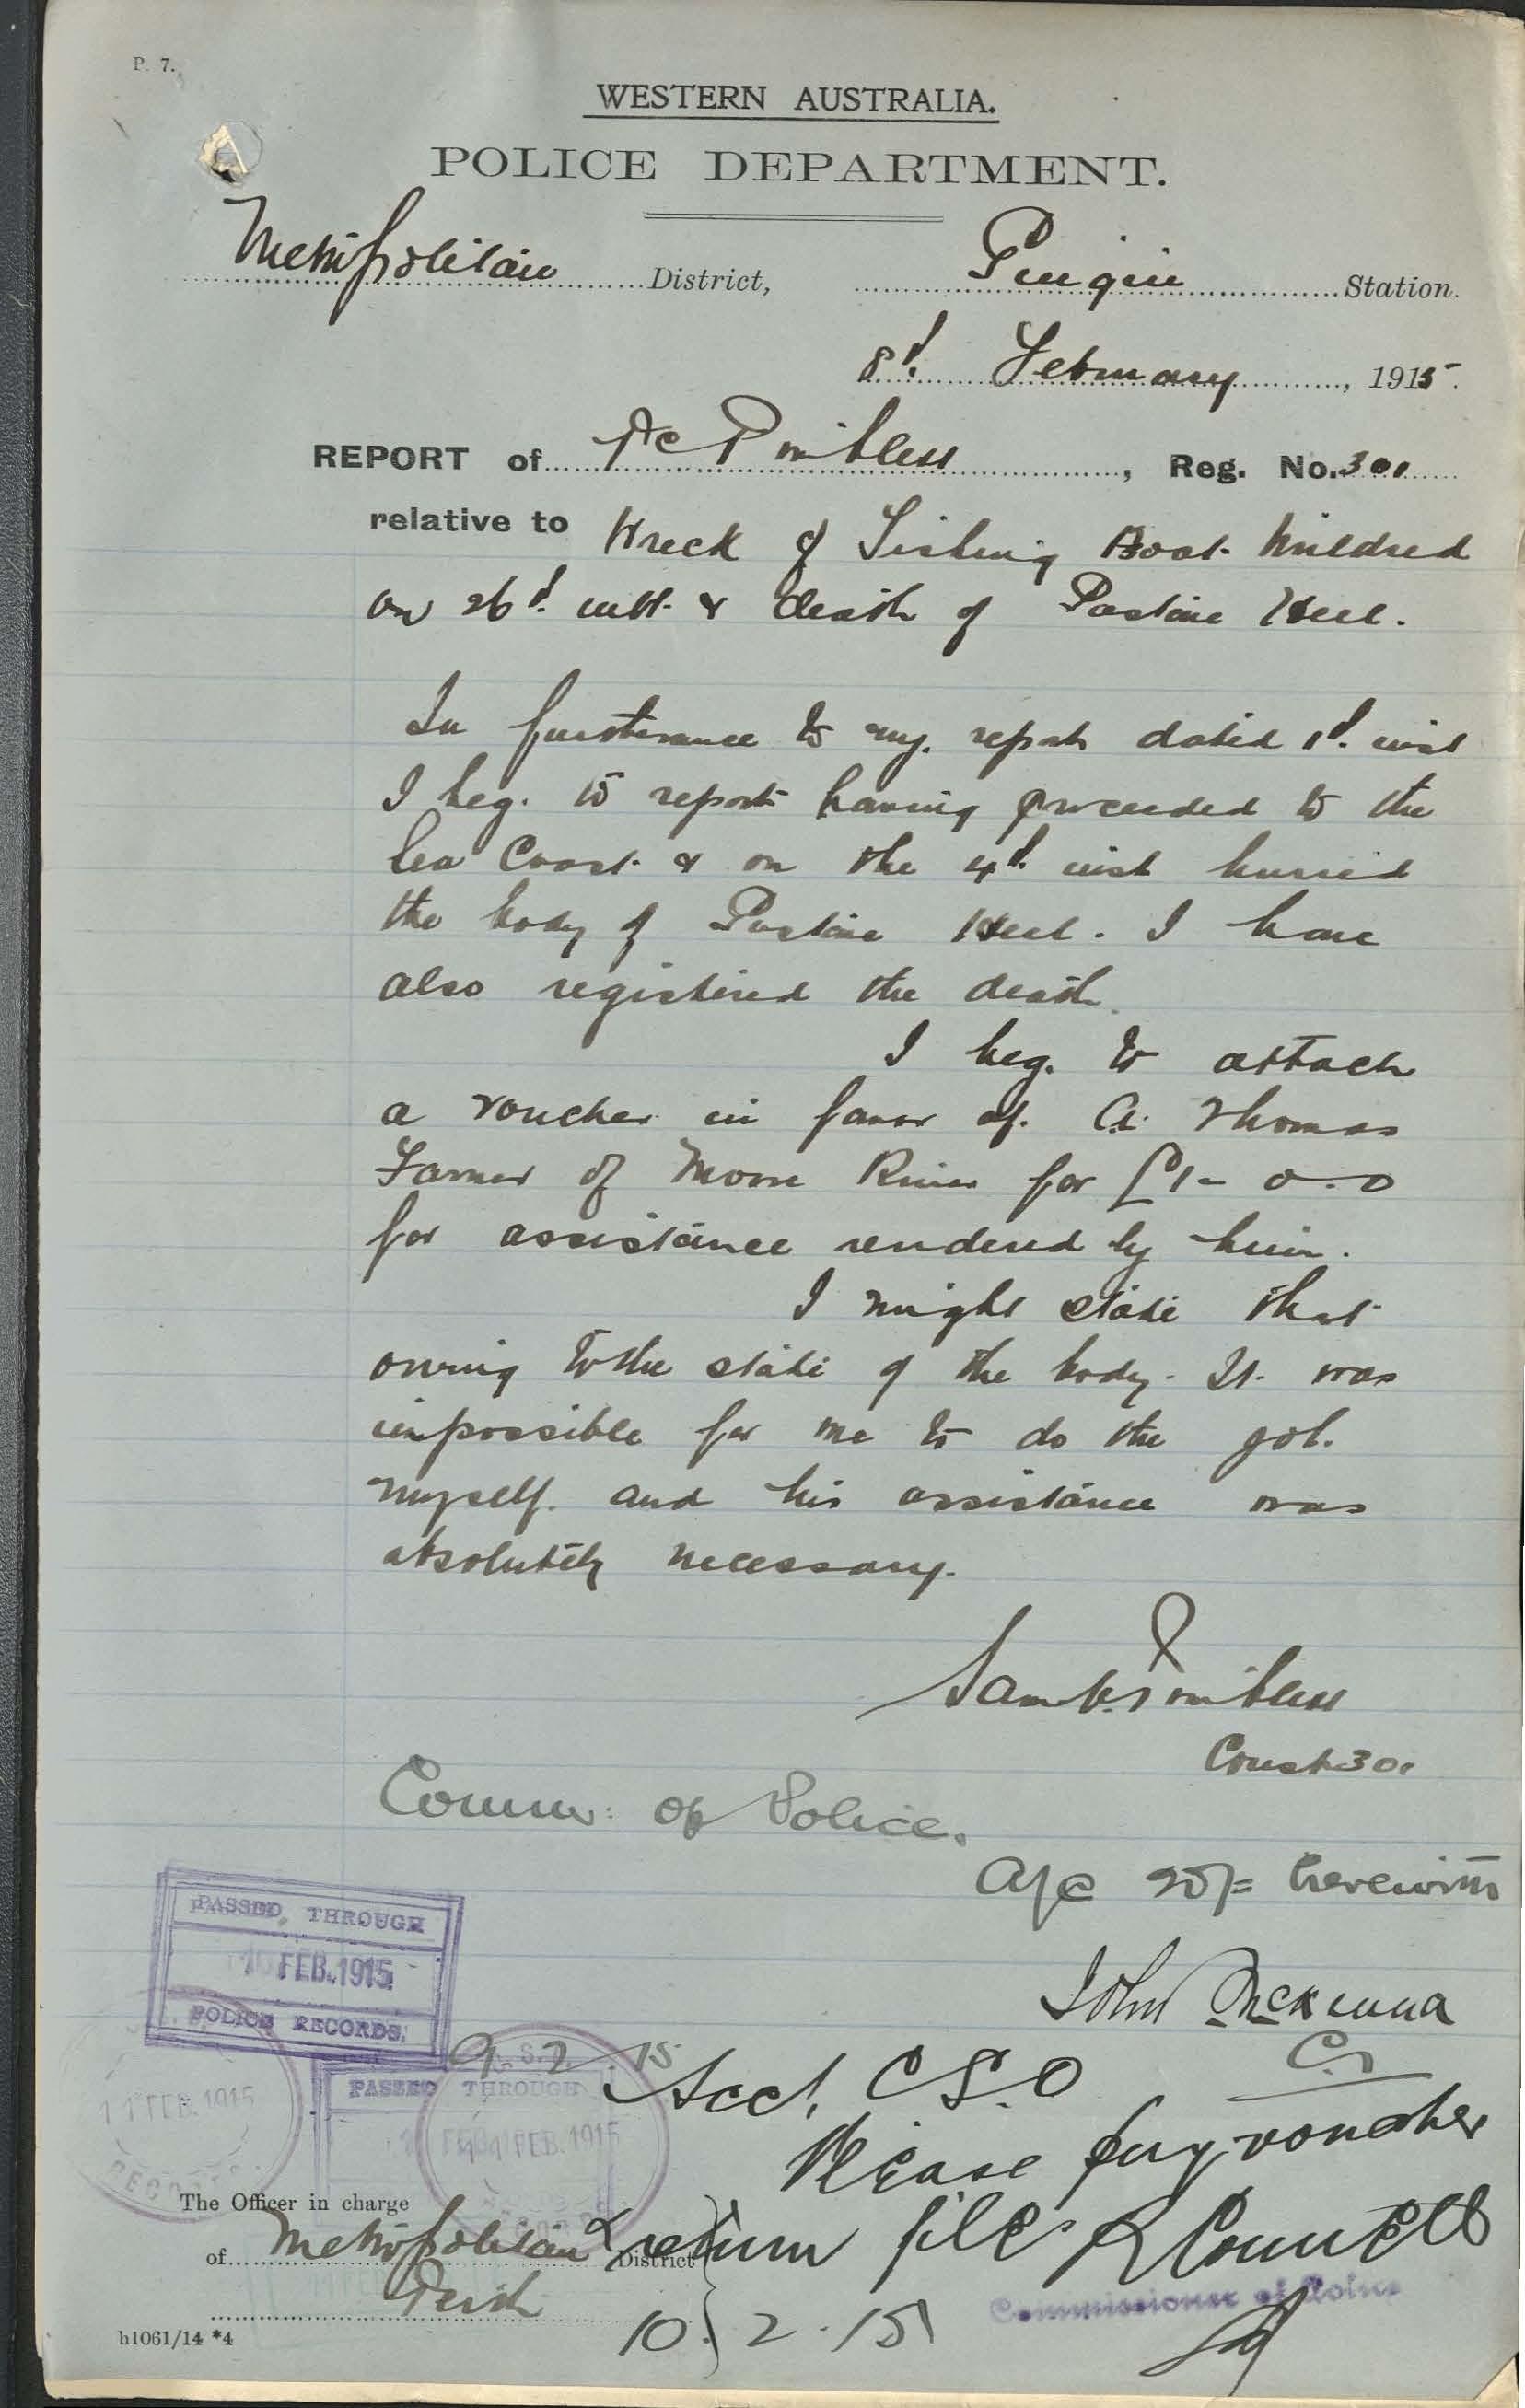 P. 7.
WESTERN AUSTRALIA.
POLICE DEPARTMENT.
Metropolitan District, Gingin Station.
8th February, 1915.
REPORT of P.C. , Reg. No. 301
relative to Wreck of Fishing Boat Mildred
on 26th ult. & death of
In furtherance to my. report dated 1st. inst
I beg. to report having proceeded to the
Sea Coast. & on the 4th. inst burried
the body of . I have
also registered the death.
I beg. to attach
a voucher in favor of. A. Thomas
Farmer of Moore River for £1-0-0
for assistance rendered by him.
I might state that
owing to the state of the body. It. was
impossible for me to do the job.
myself. and his assistance was
absolutely necessary.
Const 301
Commr: of Police.
A/c 20/= herewith
John McKenna
9.2.15
Acct. C S. O
Please pay voucher
& return file R Connell
Commissioner of Police
10.2.15
PASSED THROUGH
FEB. 1915
POLICE RECORDS.
11 FEB. 1915
RECORDS
PASSED THROUGH
FEB. 1915
The Officer in charge
of Metropolitan District
Perth
h1061/14 *4